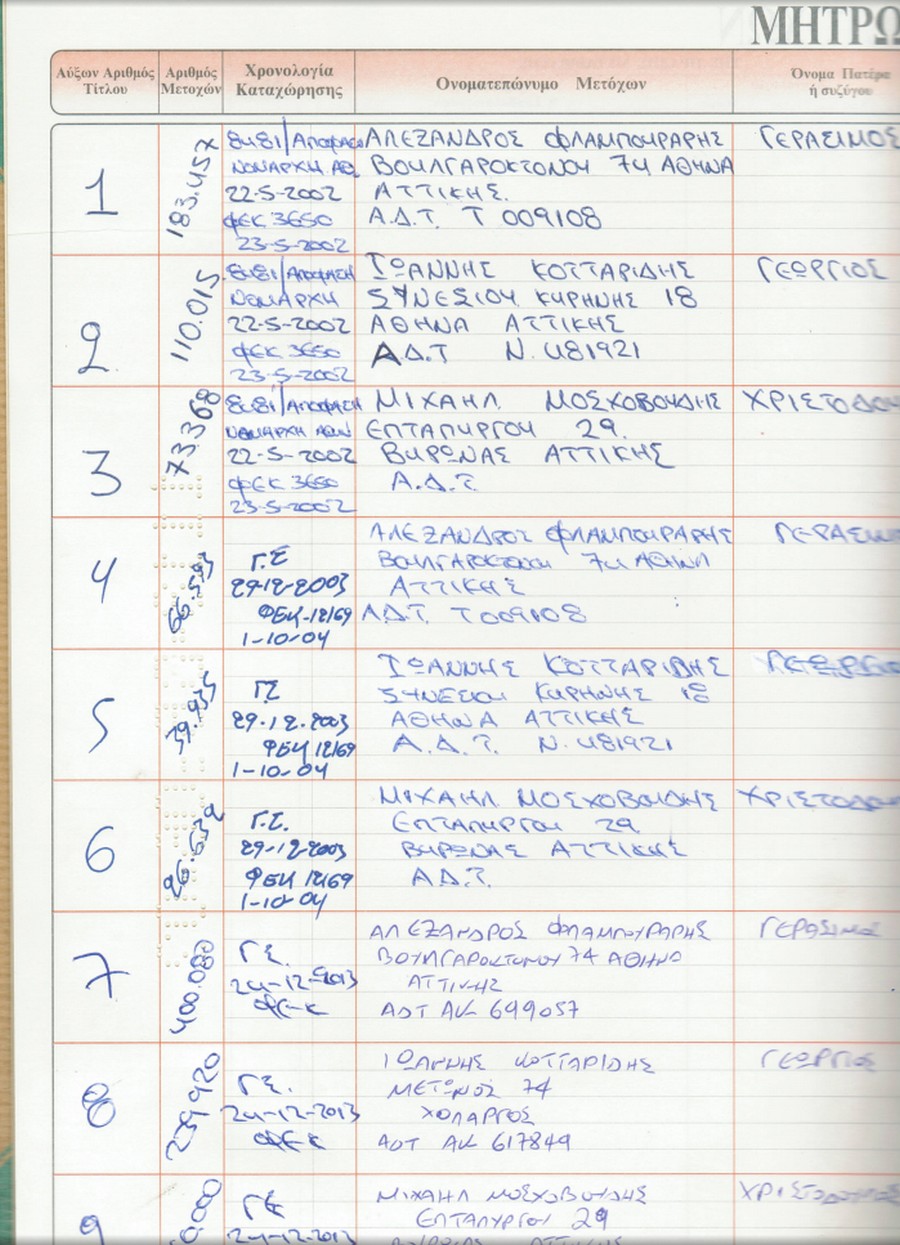 ΜΗΤΡΩ
Αύξων Αριθμός Τίτλου
Αριθμός Μετοχών
Χρονολογία Καταχώρησης
Ονοματεπώνυμο Μετόχων
Όνομα Πατέρα ή συζύγου
1
183.457
8481/ΑΠΟΦΑΣΗ
ΝΟΜΑΡΧΗ ΑΘ
22-5-2002
ΦΕΚ 3650
23-5-2002
ΑΛΕΞΑΝΔΡΟΣ ΦΛΑΜΠΟΥΡΑΡΗΣ
ΒΟΥΛΓΑΡΟΚΤΟΝΟΥ 74 ΑΘΗΝΑ
ΑΤΤΙΚΗΣ.
Α.Δ.Τ. Τ 009108
ΓΕΡΑΣΙΜΟΣ
2
110.015
8481/ΑΠΟΦΑΣΗ
ΝΟΜΑΡΧΗ
22-5-2002
ΦΕΚ 3650
23-5-2002
ΙΩΑΝΝΗΣ ΚΟΤΤΑΡΙΔΗΣ
ΣΥΝΕΣΙΟΥ ΚΥΡΗΝΗΣ 18
ΑΘΗΝΑ ΑΤΤΙΚΗΣ
Α.Δ.Τ Ν. 481921
ΓΕΩΡΓΙΟΣ
3
73.368
8481/ΑΠΟΦΑΣΗ
ΝΟΜΑΡΧΗ
22-5-2002
ΦΕΚ 3650
23-5-2002
ΜΙΧΑΗΛ ΜΟΣΧΟΒΟΥΔΗΣ
ΕΠΤΑΠΥΡΓΟΥ 29.
ΒΥΡΩΝΑΣ ΑΤΤΙΚΗΣ
Α.Δ.Τ.
ΧΡΙΣΤΟΔΟΥ
4
66.593
Γ.Σ
29-12-2003
ΦΕΚ-12169
1-10-04
ΑΛΕΞΑΝΔΡΟΣ ΦΛΑΜΠΟΥΡΑΡΗΣ
ΒΟΥΛΓΑΡΟΚΤΟΝΟΥ 74 ΑΘΗΝΑ
ΑΤΤΙΚΗΣ
Α.Δ.Τ. Τ009108
ΓΕΡΑΣΙΜ
5
39.935
ΓΣ
29-12-2003
ΦΕΚ 12169
1-10-04
ΙΩΑΝΝΗΣ ΚΟΤΤΑΡΙΔΗΣ
ΣΥΝΕΣΙΟΥ ΚΥΡΗΝΗΣ 18
ΑΘΗΝΑ ΑΤΤΙΚΗΣ
Α.Δ.Τ. Ν. 481921
ΓΕΩΡΓΙΟ
6
26.632
Γ.Σ.
29-12-2003
ΦΕΚ 12169
1-10-04
ΜΙΧΑΗΛ ΜΟΣΧΟΒΟΥΔΗΣ
ΕΠΤΑΠΥΡΓΟΥ 29
ΒΥΡΩΝΑΣ ΑΤΤΙΚΗΣ
Α.Δ.Τ.
ΧΡΙΣΤΟΔΟΥ
7
400.080
ΓΣ.
24-12-2013
ΑΛΕΞΑΝΔΡΟΣ ΦΛΑΜΠΟΥΡΑΡΗΣ
ΒΟΥΛΓΑΡΟΚΤΟΝΟΥ 74 ΑΘΗΝΑ
ΑΤΤΙΚΗΣ
ΑΔΤ ΑΚ 699057
ΓΕΡΑΣΙΜΟΣ
8
239.920
ΓΣ.
24-12-2013
ΙΩΑΝΝΗΣ ΚΟΤΤΑΡΙΔΗΣ
ΜΕΤΩΝΟΣ 74
ΧΟΛΑΡΓΟΣ
ΑΔΤ ΑΚ 617849
ΓΕΩΡΓΙΟΣ
9
ΓΣ
24-12-2013
ΜΙΧΑΗΛ ΜΟΣΧΟΒΟΥΔΗΣ
ΕΠΤΑΠΥΡΓΟΥ 29
ΧΡΙΣΤΟΔΟΥΛΟΣ